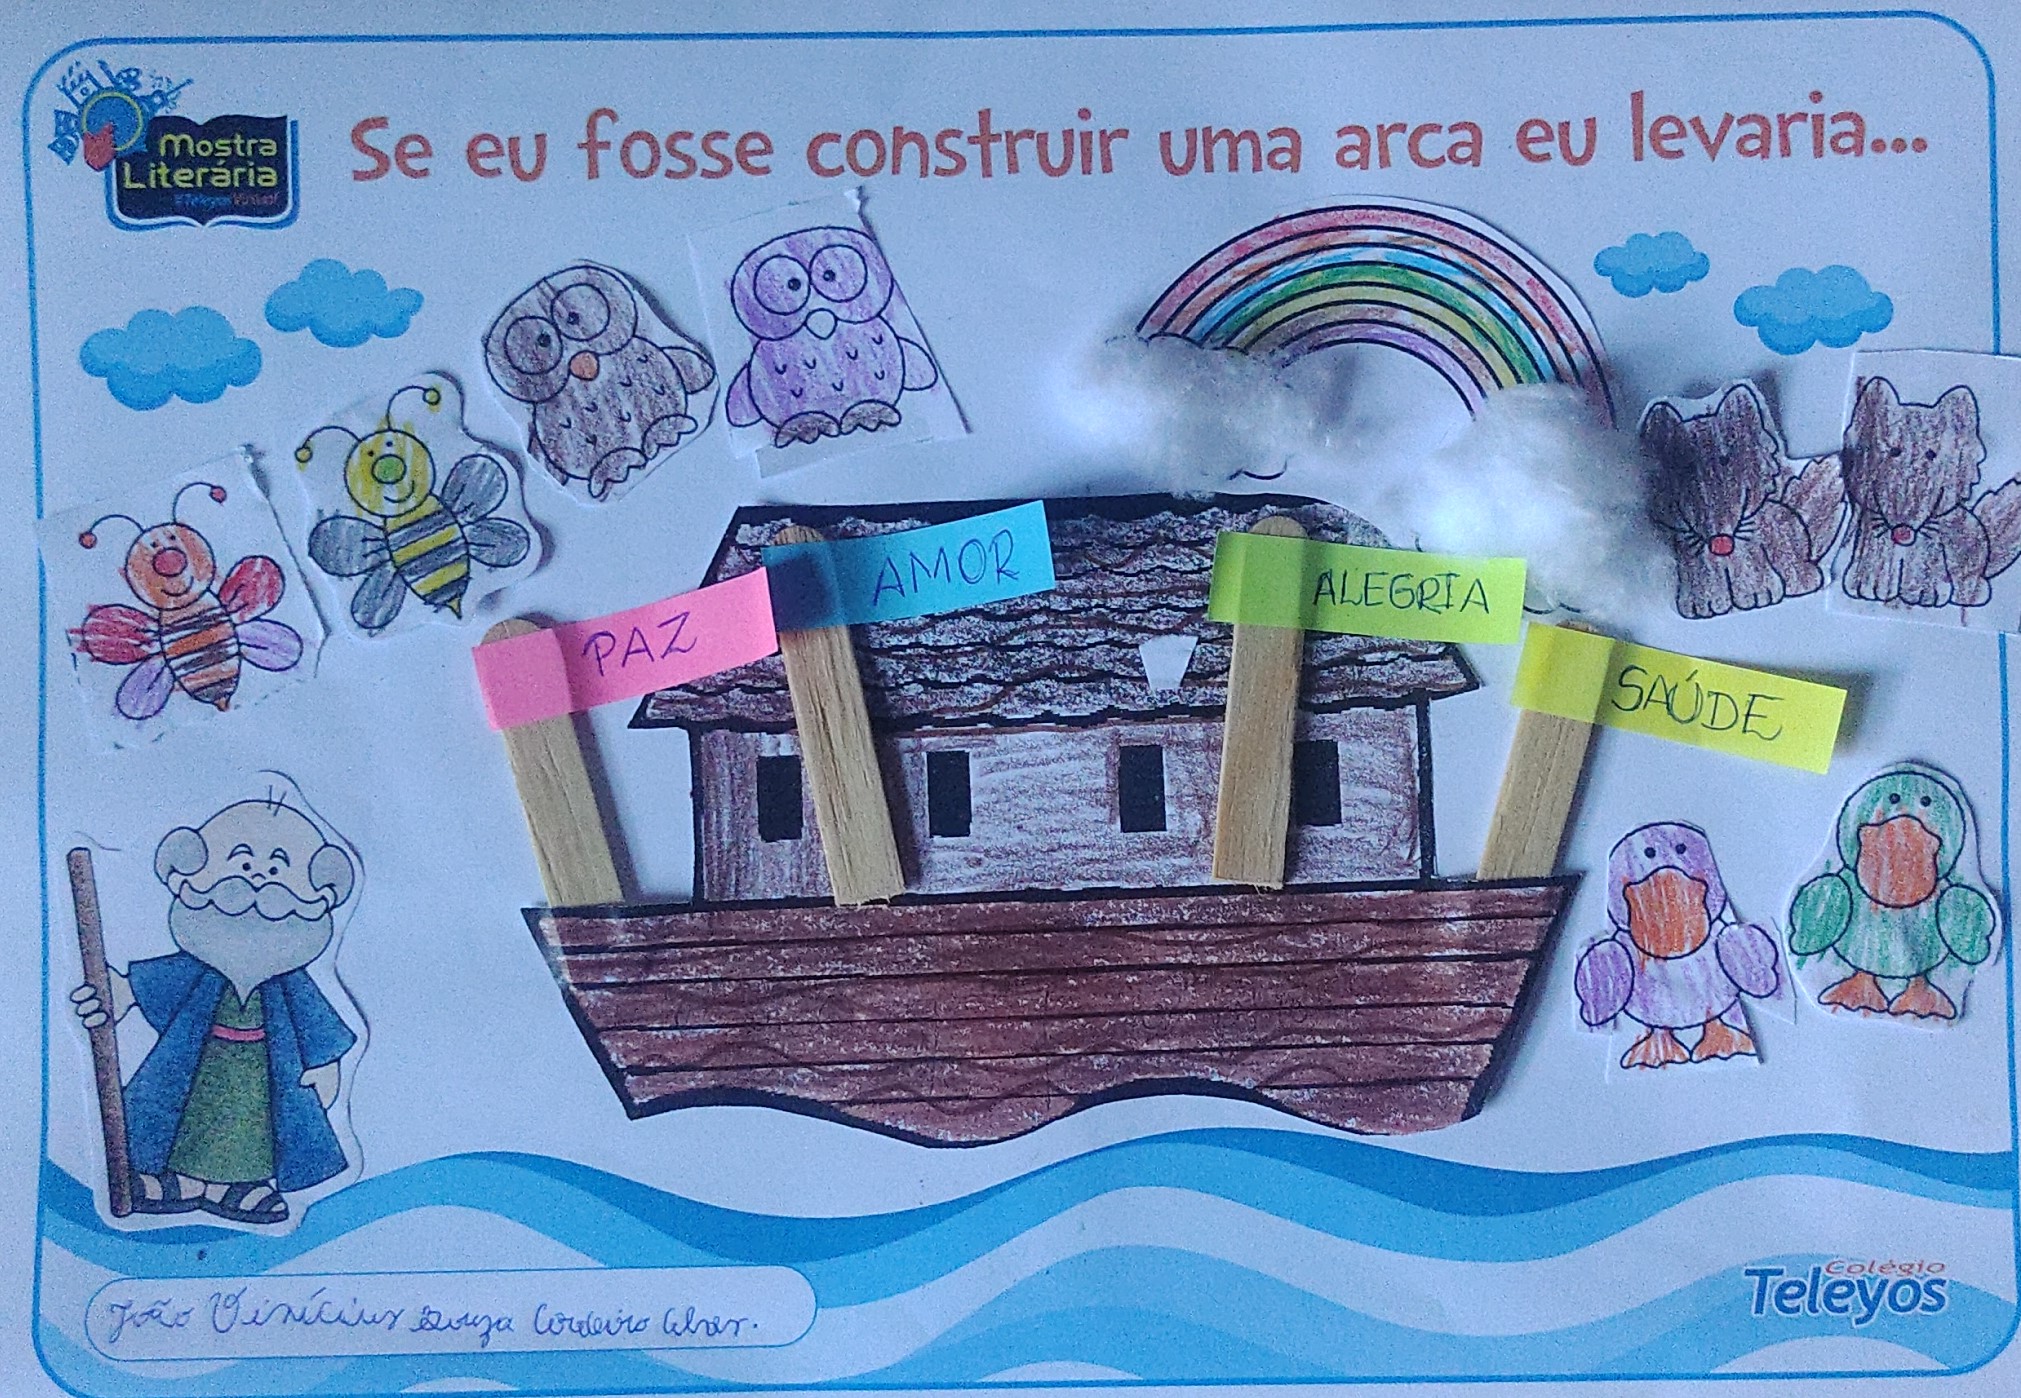 Mostra
Literária
#Teleyos Virtual
Se eu fosse construir uma arca eu levaria...
PAZ
AMOR
ALEGRIA
SAÚDE
João Vinícius Souza Cordeiro
Colégio
Teleyos